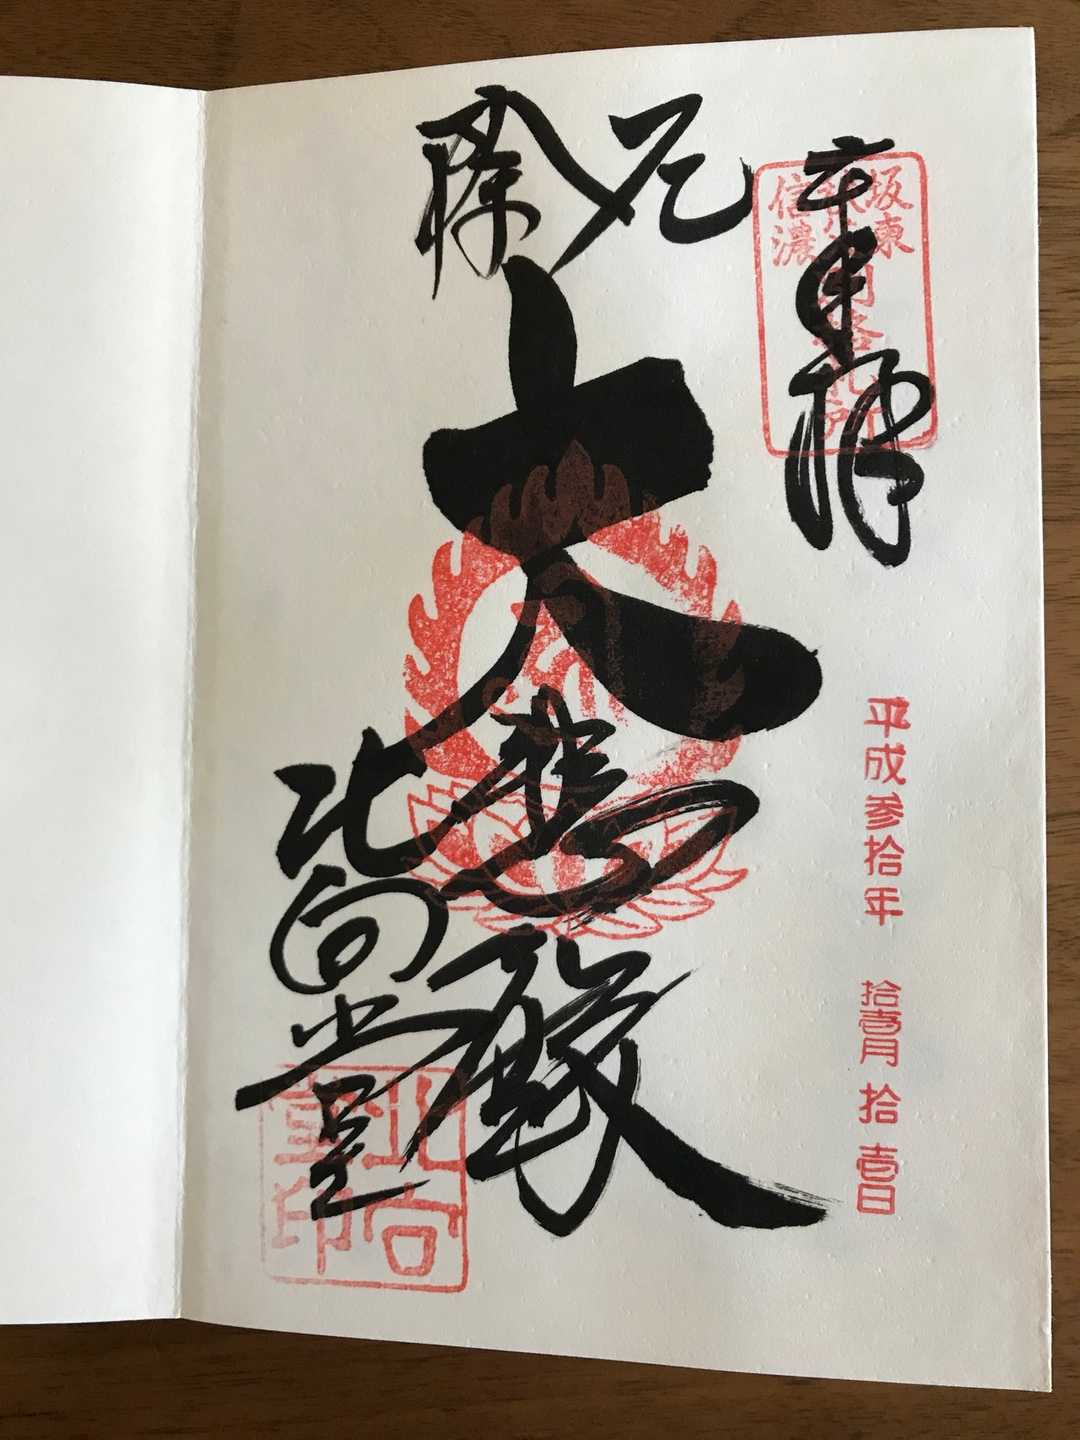 奉拝
坂東
信濃
平成参拾年 拾壹月 拾壹日
厄除
大悲殿
北向堂
北向
堂印